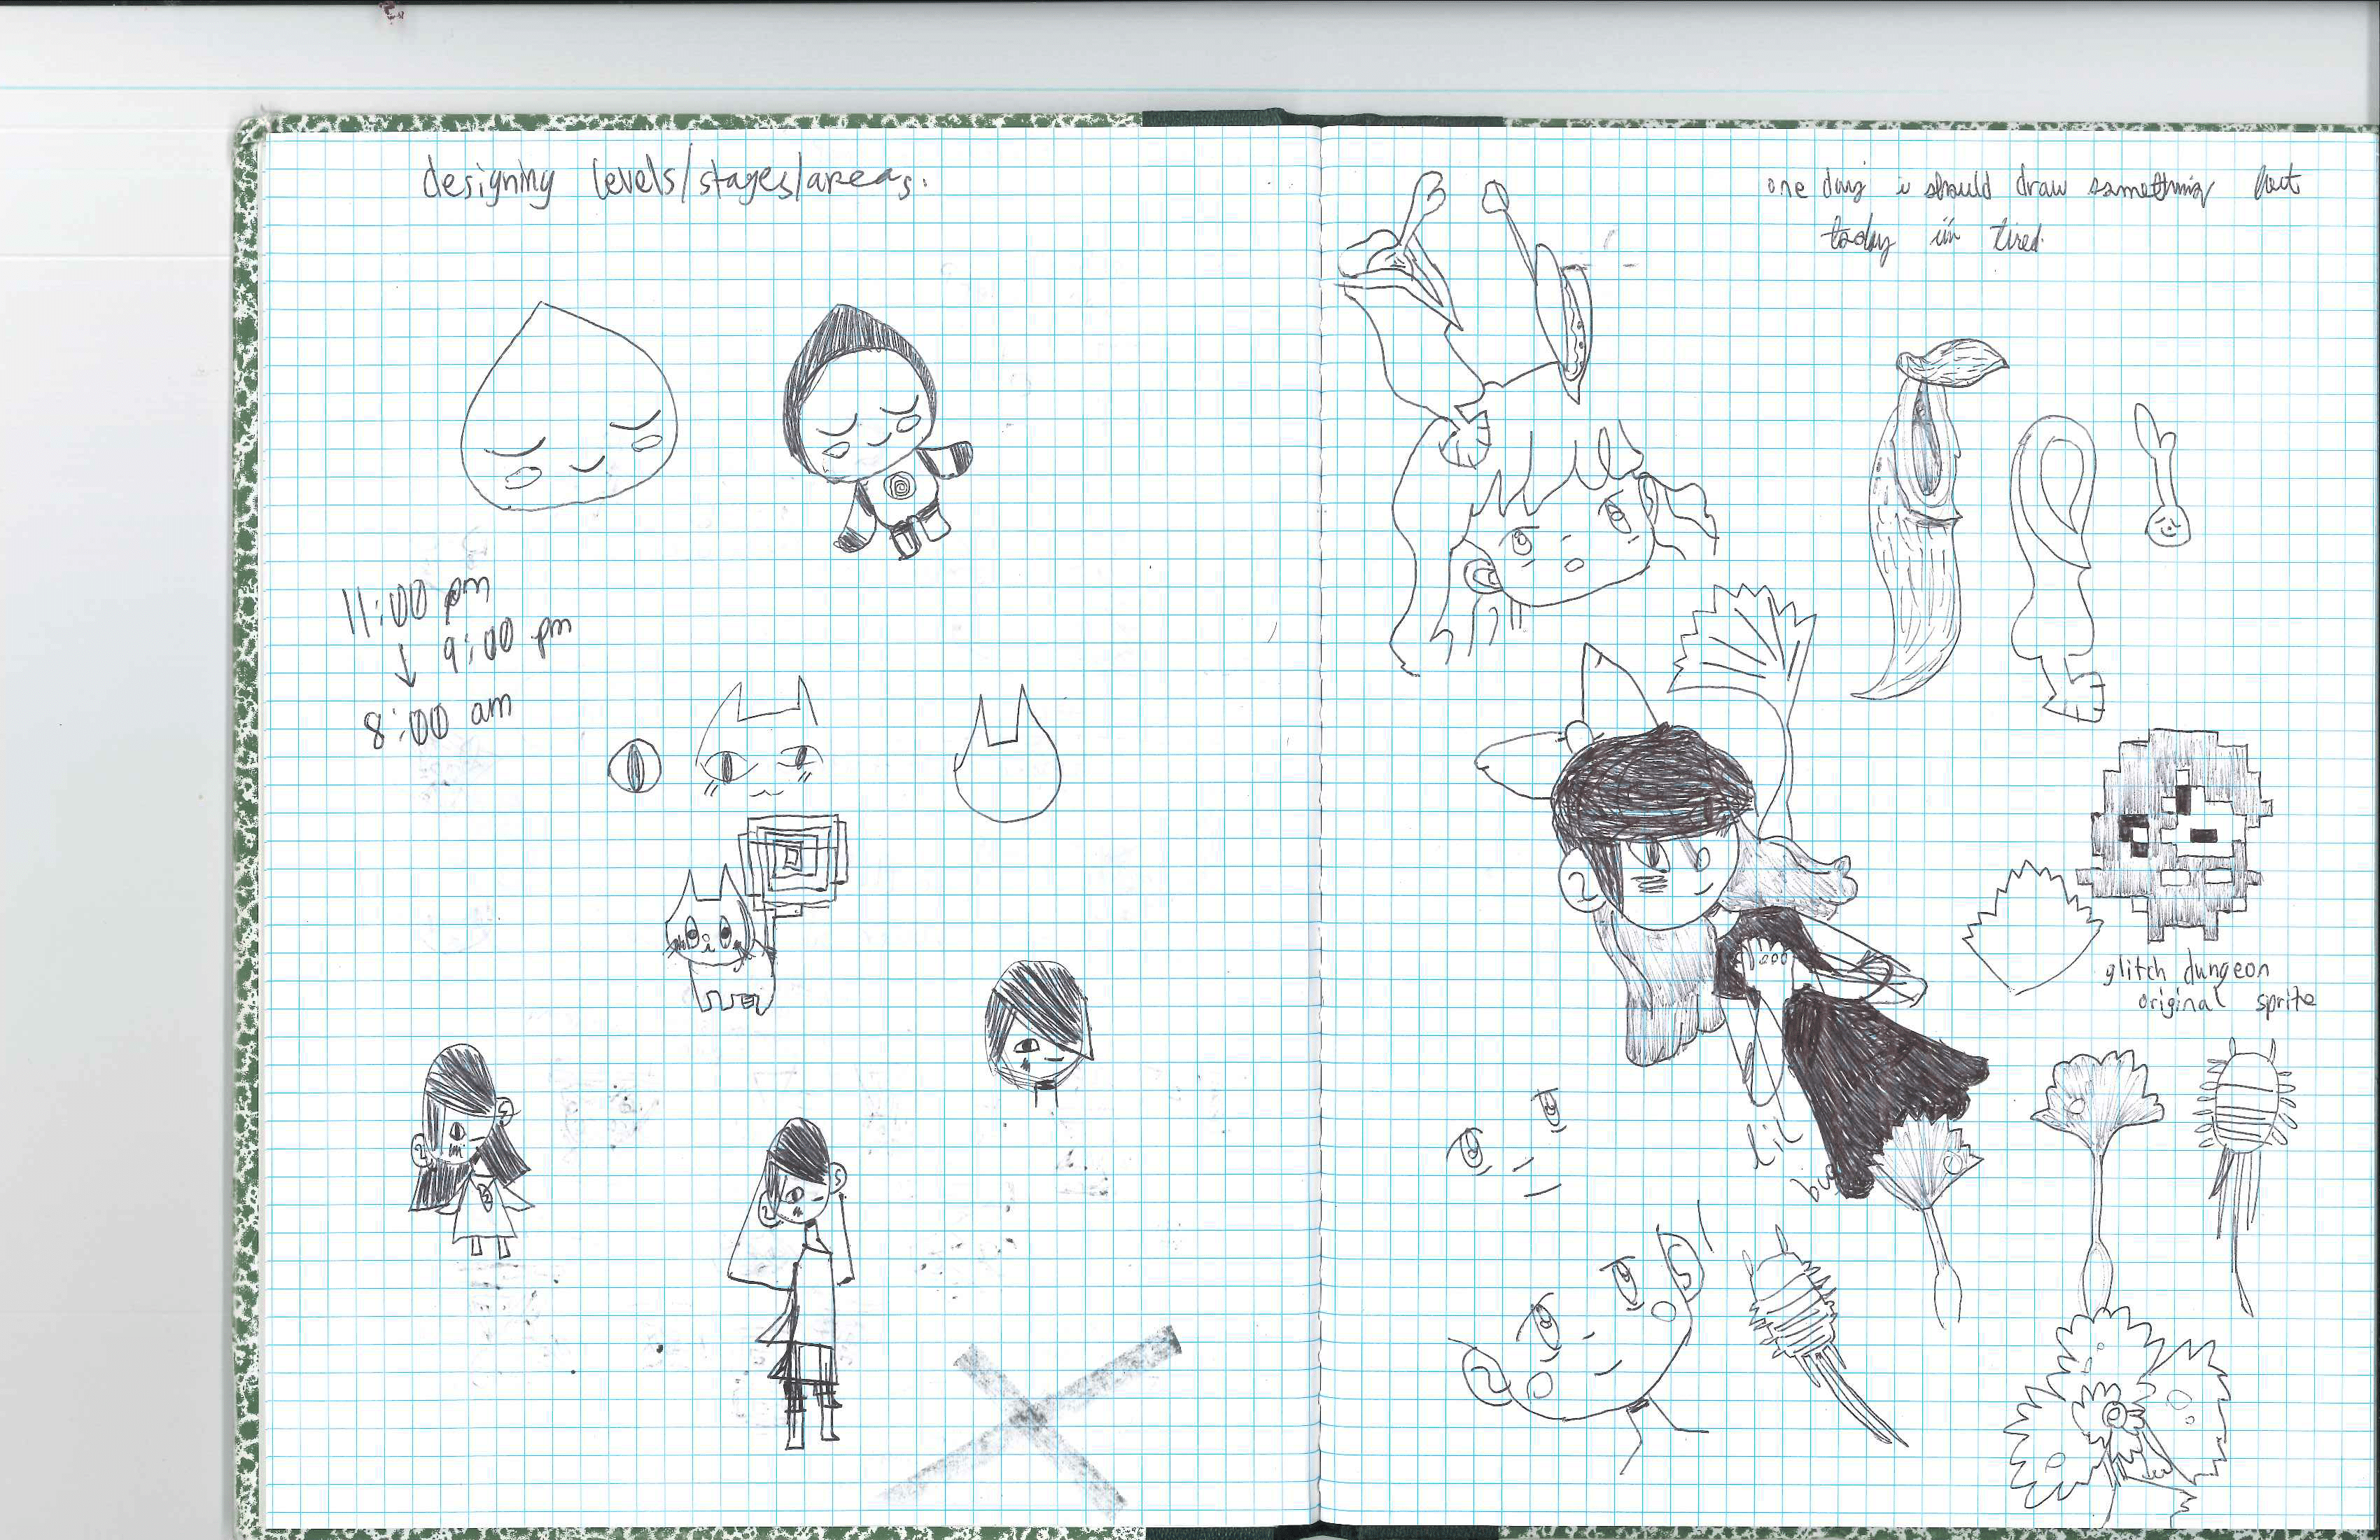 designing levels/stages/areas.
11:00 pm
9:00 pm
8:00 am
one day i should draw something but
today i'm tired.
glitch dungeon
original sprite
lil
bug